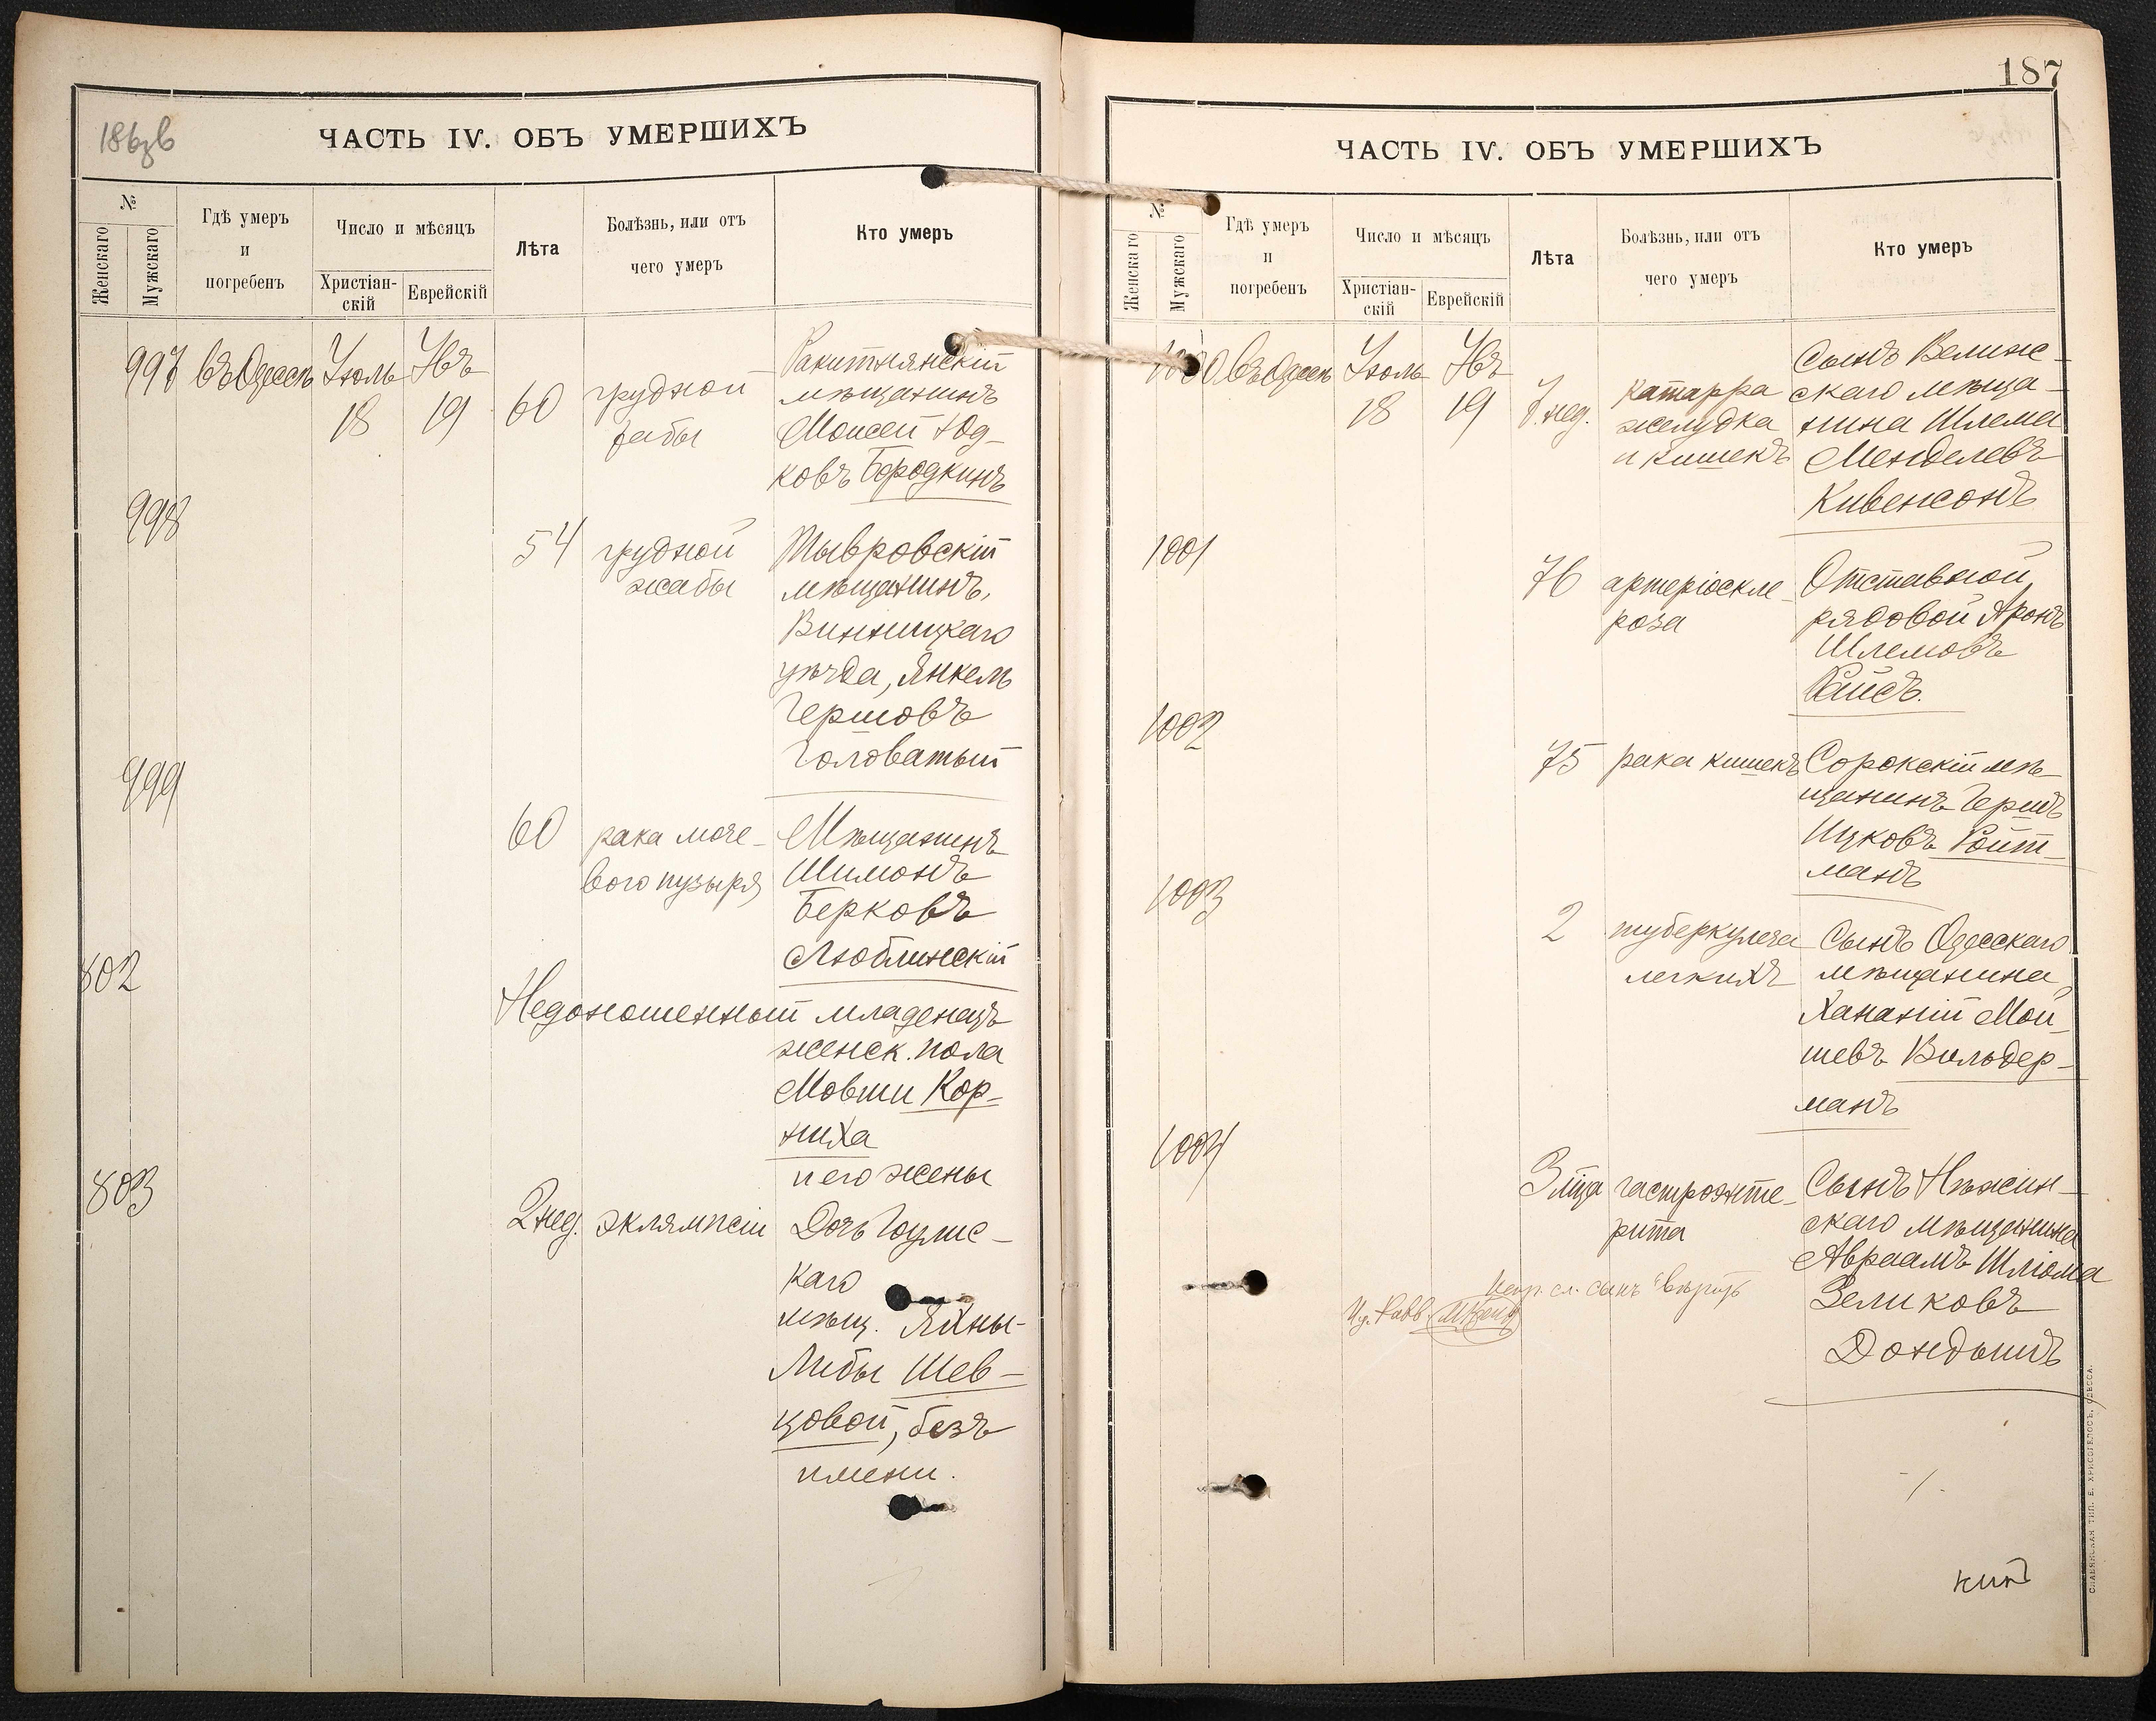 186зв
ЧАСТЬ IV. ОБЪ УМЕРШИХЪ
№
Женскаго
Мужскаго
Гдѣ умеръ
и
погребенъ
Число и мѣсяцъ
Христіан-
скій
Еврейскій
Лѣта
Болѣзнь, или отъ
чего умеръ
Кто умеръ
997 въ Одессѣ Іюль Ювъ
18 19 60 грудной
жабы
Ракитнянскій
мѣщанинъ
Моисей Юд-
ковъ Бородкинъ
998
54 грудной
жабы
Тывровскій
мѣщанинъ,
Винницкаго
уѣзда, Янкель
Гершовъ
Головатый
999
60 рака моче-
вого пузыря
Мѣщанинъ
Шимонъ
Берковъ
Люблинскій
802
Недоношенный младенецъ
женск. пола
Мовши Кор-
ниха
и его жены
803
2 нед. эклямпсіи
Дочь
каго
мѣщ. Яхны-
Либы Шев-
цовой, безъ
имени.
187
ЧАСТЬ IV. ОБЪ УМЕРШИХЪ
№
Женскаго
Мужскаго
Гдѣ умеръ
и
погребенъ
Число и мѣсяцъ
Христіан-
скій
Еврейскій
Лѣта
Болѣзнь, или отъ
чего умеръ
Кто умеръ
1000 въ Одессѣ Іюль Ювъ
18 19 7 нед.
катарра
желудка
и кишекъ
Сынъ Велиж-
скаго мѣща-
нина Шлема
Менделевъ
Кивенсонъ
1001
76 артеріоскле-
роза
Отставной
рядовой Аронъ
Шлемовъ
Райсъ.
1002
75 рака кишекъ
Сорокскій мѣ-
щанинъ Гершъ
Ицковъ Ройт-
манъ
1003
2 туберкулеза
легкихъ
Сынъ Одесскаго
мѣщанина
Хананій Мой-
шевъ Вильдер-
манъ
1004
3 мца гастроэнте-
рита
Сынъ Нѣжин-
скаго мѣщанина
Авраамъ Шліома
Зеликовъ
Дондышъ
сл. сынъ вѣрить
Раввинъ
СЛАВЯНСКАЯ ТИП. Е. ХРИСОГЕЛОСЪ, ОДЕССА.